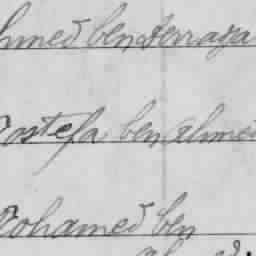 hmed ben Serraga
Mostefa ben Ahmed
Mohamed ben